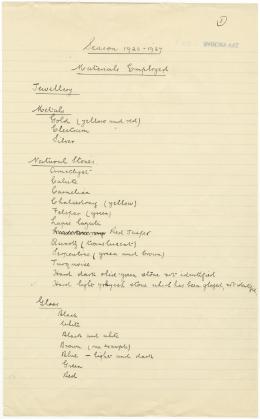 1
Season 1926-1927
Materials Employed
Jewellery
Metals
Gold (yellow and red)
Electrum
Silver
Natural Stones
Amethyst
Calcite
Carnelian
Chalcedony (yellow)
Felspar (green)
Lapis lazuli
Red Jasper
Quartz (translucent)
Serpentine (green and brown)
Turquoise
Hard dark olive-green stone not identified
Hard light greyish stone which has been glazed, not identified
Glass
Black
White
Black and white
Brown (one example)
Blue - light and dark
Green
Red